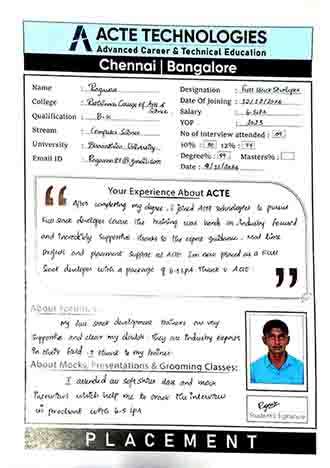 ACTE TECHNOLOGIES
Advanced Career & Technical Education
Chennai | Bangalore
Name :
College : College of Arts & Science
Qualification :
Stream : Computer Science
University : University
Email ID :
Designation : Full Stack Developer
Date Of Joining : 12/12/2024
Salary : 6.5 LPA
YOP : 2023
No of interview attended : 04
10% : 12% :
Degree% : Masters% :
Date : 9/12/2024
Your Experience About ACTE
After completing my degree. I joined ACTE technologies to pursue
Full stack developer course. The training was hands on, industry focused
and incredibly supportive. thanks to the expert guidance. Real time
projects and placement support at ACTE. Im now placed as a Full
Stack developer with a package of 6.5 LPA. Thank u ACTE
About
My full stack development trainers are very
supportive and clear my doubts. They are industry experts
in their field. I thank to my trainer
About Mocks, Presentations & Grooming Classes:
I attended all soft skills class and mock
interviews which help me to crack the interview
with 6.5 LPA
Student's Signature
PLACEMENT